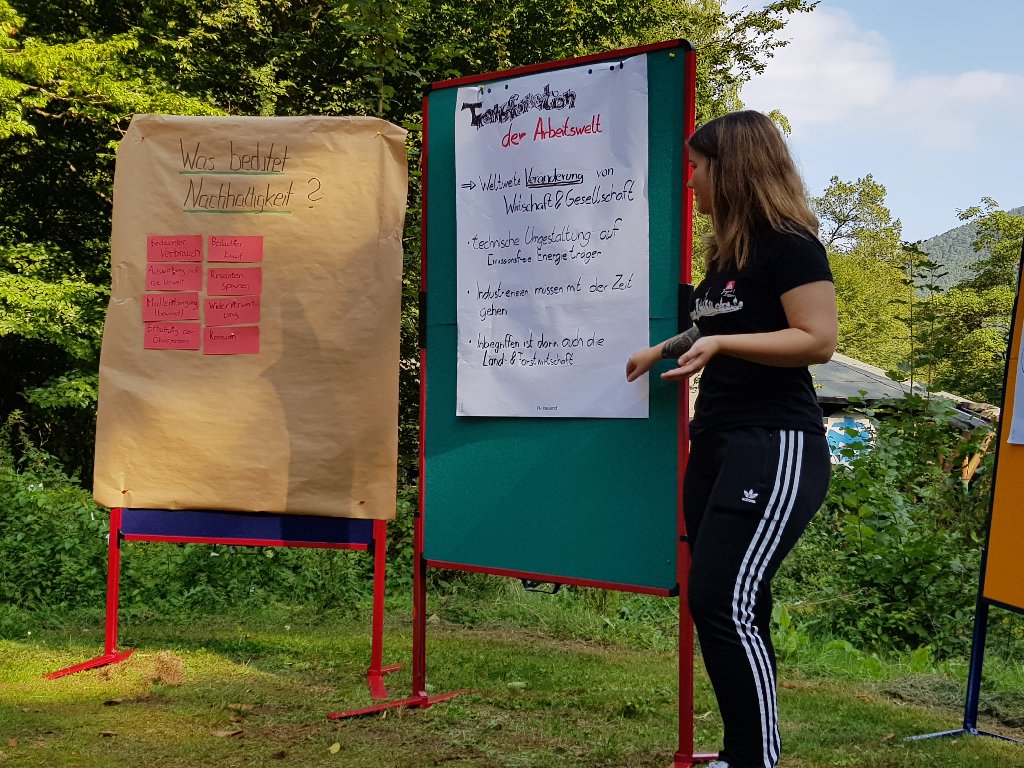 Was bedutet
Nachhaltigkeit ?
Bedachter
Verbrauch
Bedachter
Kauf
Auswirkung auf
die Umwelt
Ressourcen
sparen
Müllentsorgung
(bewusst)
Wiederverwert-
ung
Erhaltung der
Ökosysteme
Konsum
Transformation
der Arbeitswelt
⇒ Weltweite Veränderung von
Wirtschaft & Gesellschaft
• technische Umgestaltung auf
Emissionsfreie Energieträger
• Industrieneien müssen mit der Zeit
gehen
• Inbegriffen ist darin auch die
Land- & Forstwirtschaft
neuland